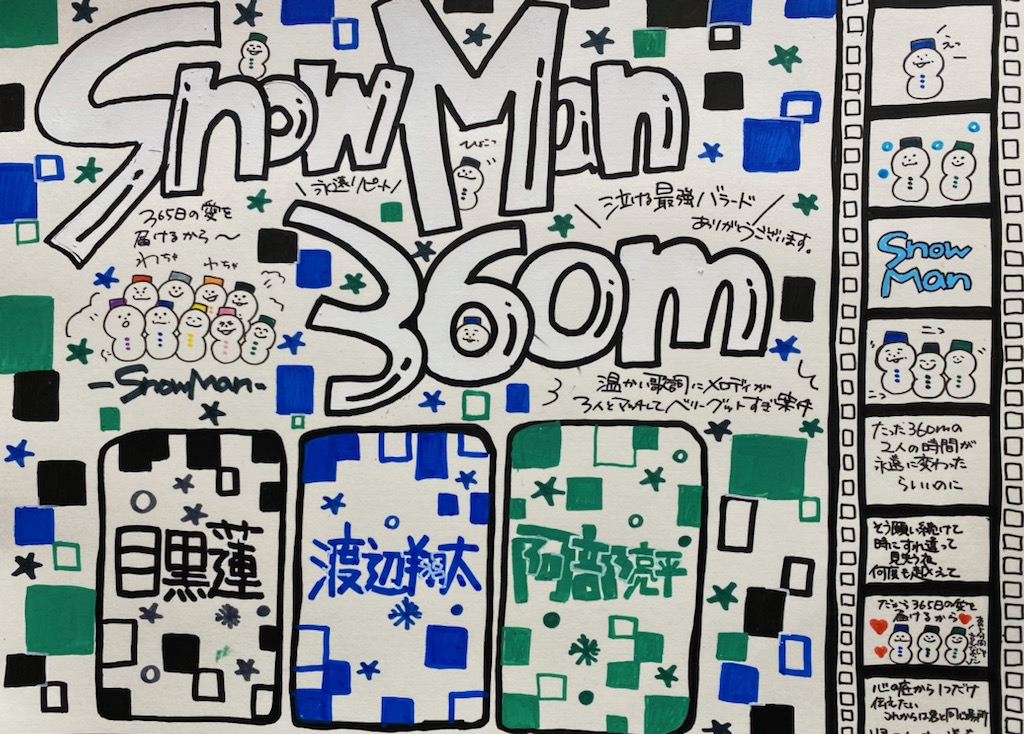 Snow Man
ひょこっ
＼永遠リピート／
＼泣ける最強バラード／
ありがとうございます。
365日の愛を
届けるから〜
わちゃ
わちゃ
-SnowMan-
360m
温かい歌詞にメロディが
3人とマッチしてベリーグットすぎ案件
目黒蓮
渡辺翔太
阿部亮平
えっ
Snow
Man
ニコッ
ニコッ
たった360mの
2人の時間が
永遠に変わった
らいいのに
そう願い続けて
時にすれ違って
見失う夜
何度も越えて
だから365日の愛を
届けるから
心の底から1つだけ
伝えたい
これからは君と同じ場所